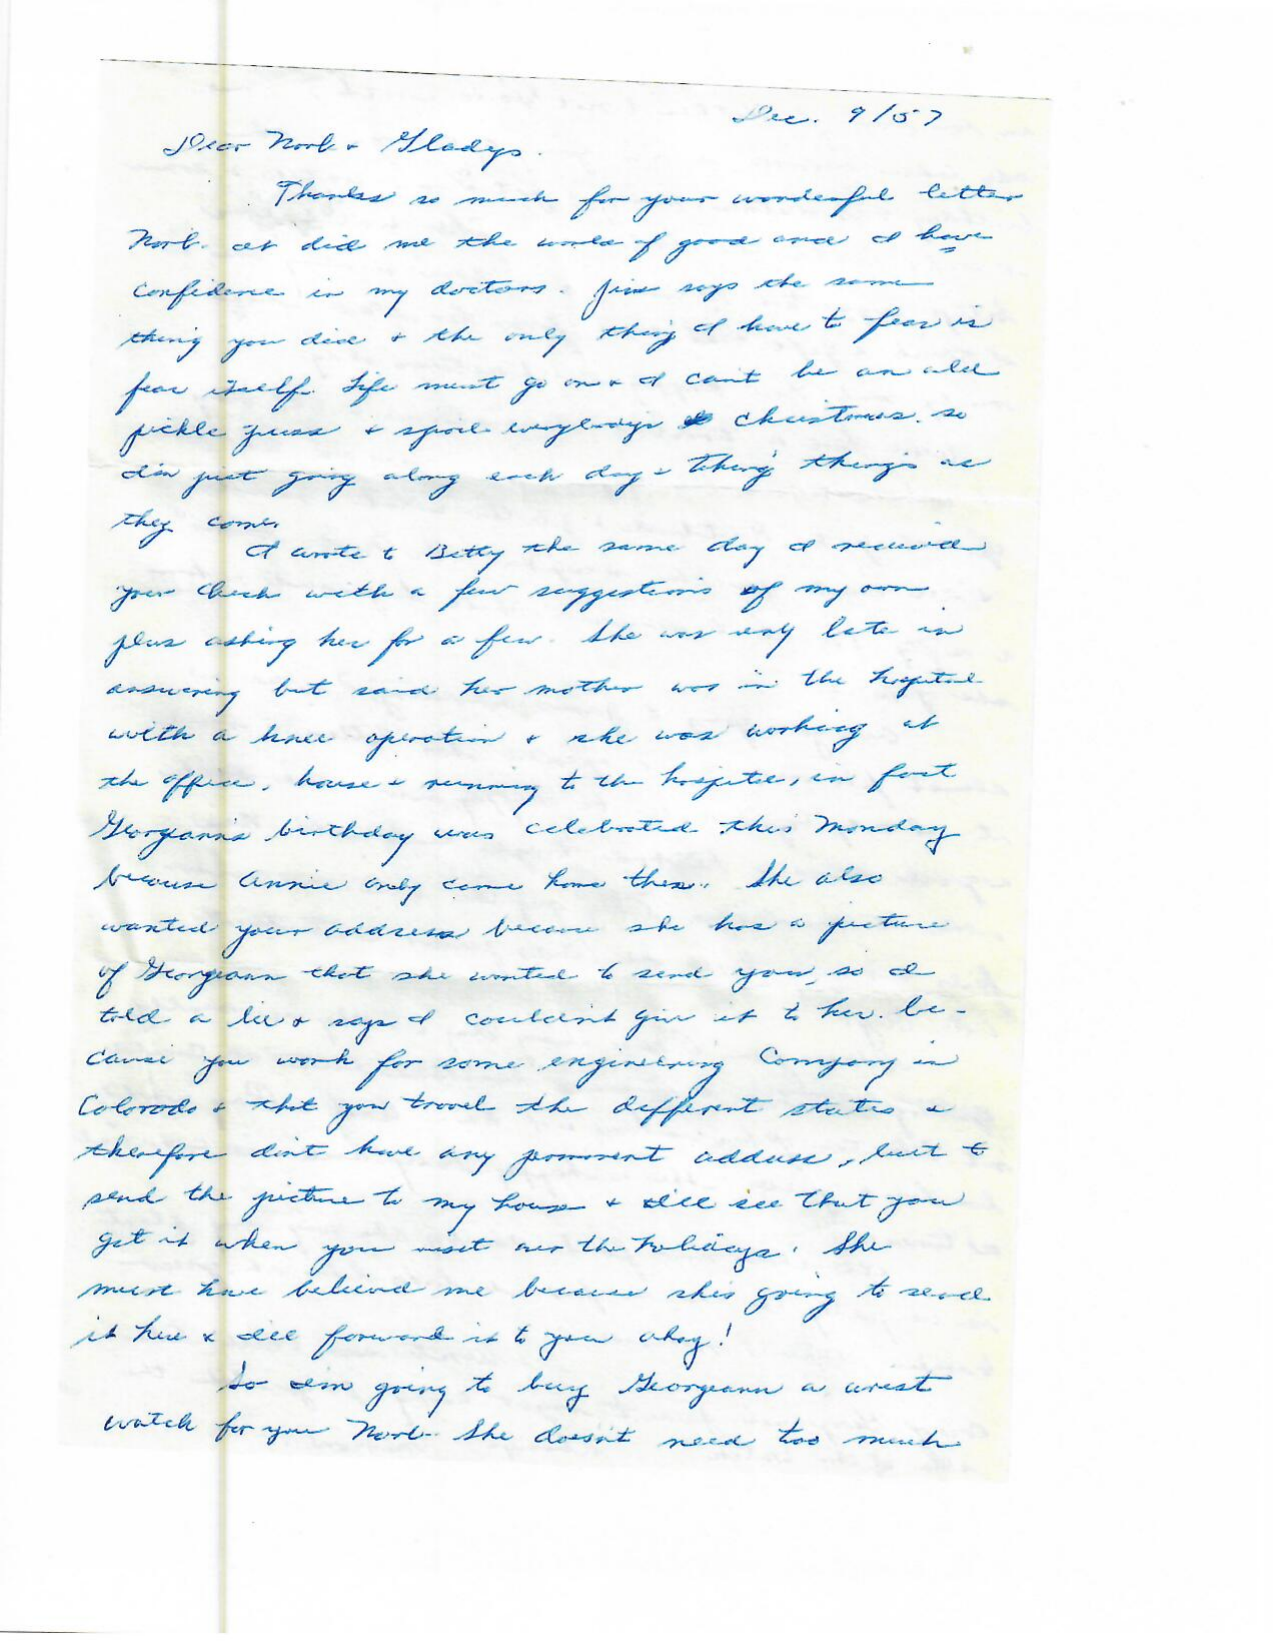 Dec. 9/57
Dear Norb & Gladys.
Thanks so much for your wonderful letter
Norb. It did me the world of good and I have
confidence in my doctors. Jim says the same
thing you did & the only thing I have to fear is
fear itself. Life must go on & I can't be an old
pickle puss & spoil everybodys Christmas. so
I'm just going along each day & taking things as
they come.
I wrote to Betty the same day I received
your check with a few suggestions of my own
plus asking her for a few. She was very late in
answering but said her mother was in the hospital
with a knee operation & she was working at
the office, house & running to the hospital, in fact
Georgeann's birthday was celebrated this Monday
because Annie only came home then. She also
wanted your address because she has a picture
of Georgeann that she wanted to send you, so I
told a lie & says I couldn't give it to her. be-
cause you work for some engineering Company in
Colorado & that you travel the different states &
therefore don't have any permanent address, but to
send the picture to my house & I'll see that you
get it when you visit over the holidays. She
must have believed me because she's going to send
it here & I'll forward it to you okay!
So I'm going to buy Georgeann a wrist
watch for you Norb. She doesn't need too much